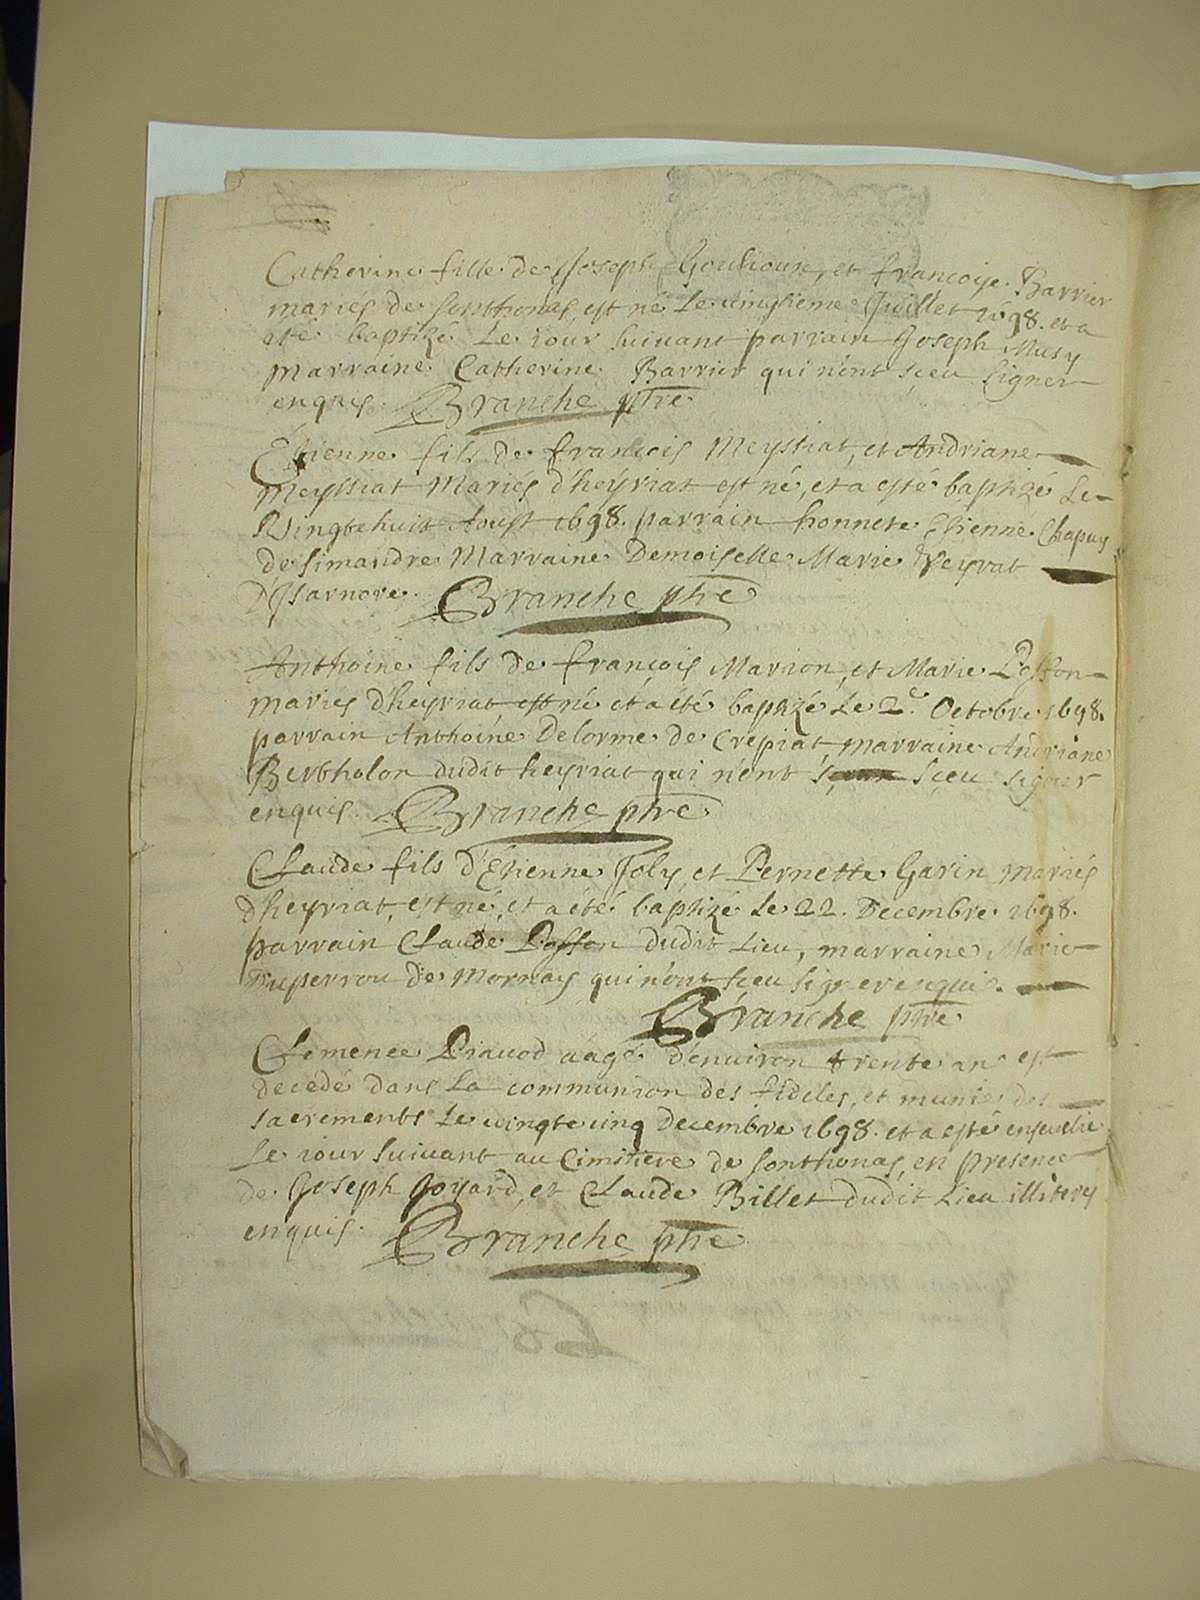 Catherine fille de Joseph Goulioux, et françoise Barrier
mariés de sonthonas, est né le vingtieme Juillet 1698. et a
eté baptizé le iour suivant parrain Joseph Musy
Marraine Catherine Barrier qui n'ont sceu signer
enquis. Branche ptre
Etienne fils de françois Meyssiat, et Andriane
Meyssiat Mariés d'heyriat est né, et a esté baptizé le
Vingtehuit Aoust 1698. parrain honnete Etienne Chapuy
de simandre Marraine Demoiselle Marie Veyrat
D'Isarnore. Branche ptre
Anthoine fils de françois Marion, et Marie Poffon
mariés d'heyriat est né et a été baptizé le 2e. Octobre 1698.
parrain Anthoine Delorme de crepiat, marraine Andriane
Bertholon dudit heyriat qui n'ont sceu signer
enquis. Branche ptre
Claude fils d'Etienne Joly et Pernette Gavin mariés
d'heyriat, est né, et a été baptizé le 22. Decembre 1698.
parrain Claude Poffon dudit Lieu, marraine Marie
Duperrou de Mornay qui n'ont sceu signer enquis.
Branche ptre
Clemence Piavod aagé d'environ trente an est
decedé dans La communion des fideles, et munie des
sacrements le vingtecinq Decembre 1698. et a esté ensevelie
Le iour suivant au cimitiere de sonthonas, en presence
de Joseph Goyard, et Claude Billet dudit Lieu illiterés
enquis. Branche ptre